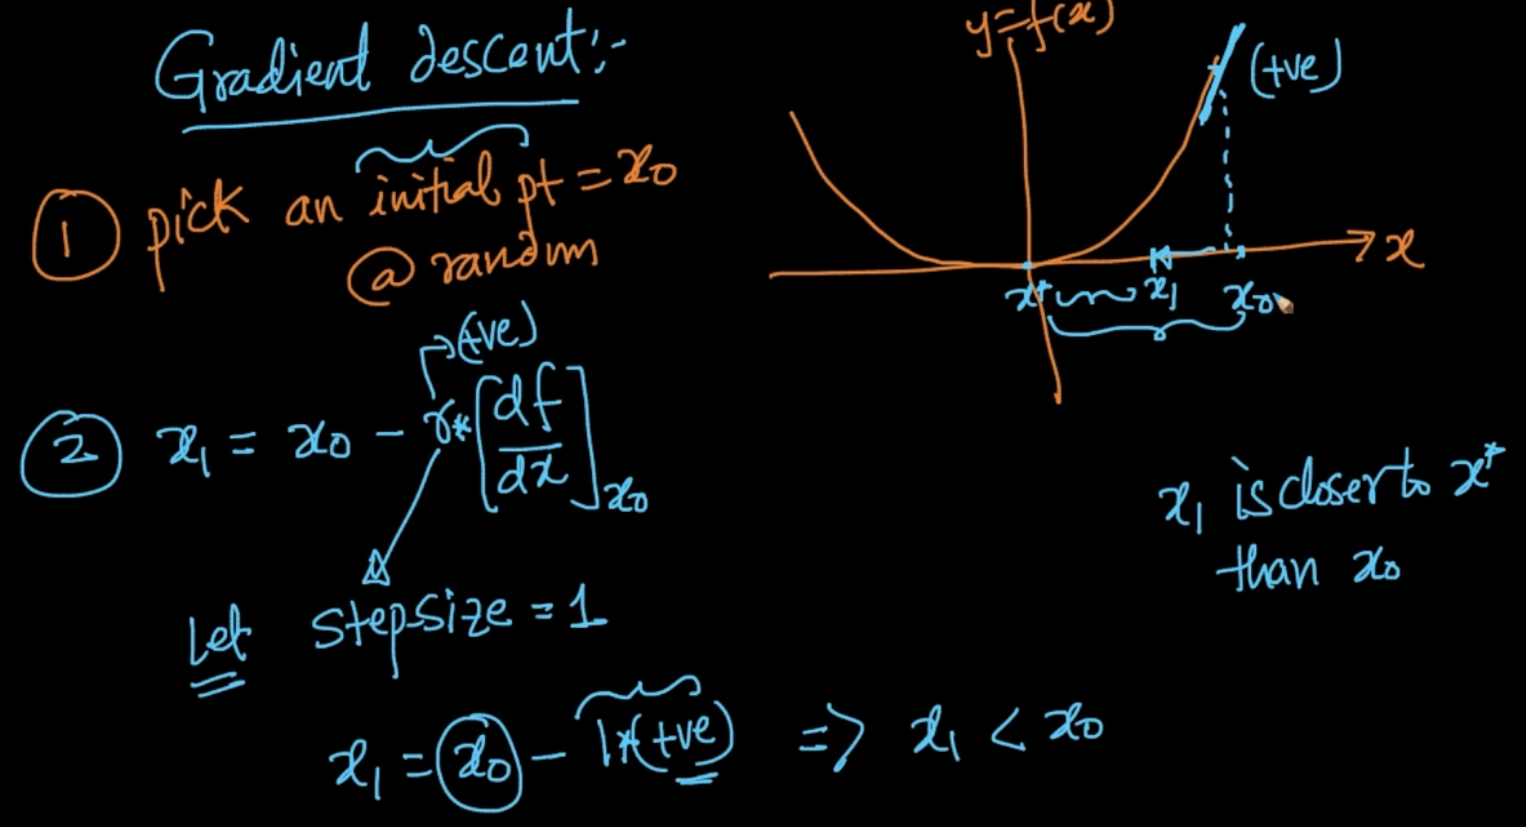 Gradient descent:-
① pick an initial pt = x₀
@ random
(+ve)
② x₁ = x₀ - r* [df/dx]ₓ₀
Let stepsize = 1
x₁ = x₀ - 1*(+ve) => x₁ < x₀
y=f(x)
(+ve)
x
x* x₁ x₀
x₁ is closer to x*
than x₀